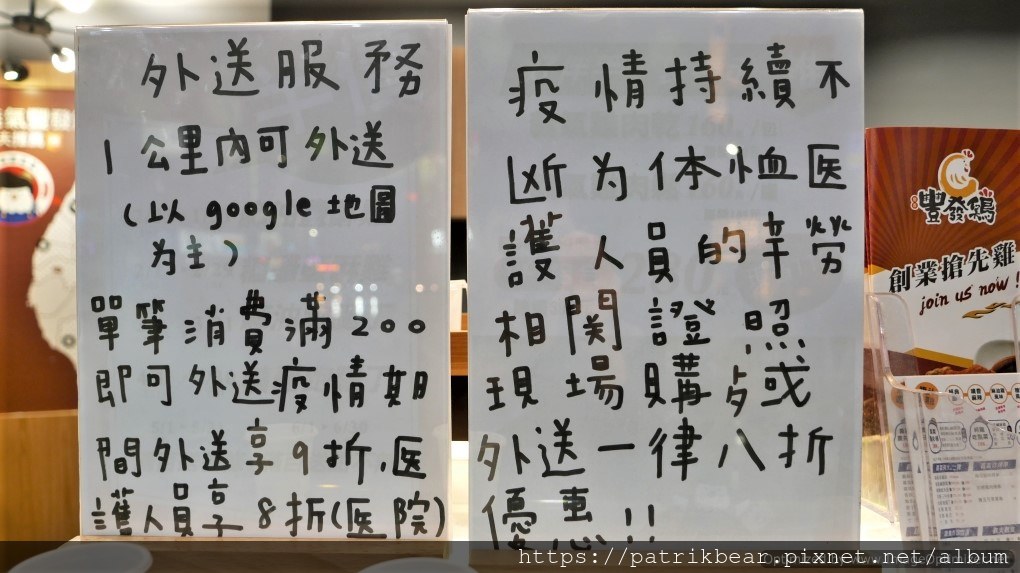 外送服務
1公里內可外送
(以google地圖
為主)
單筆消費滿200
即可外送疫情期
間外送享9折,医
護人員享8折(医院)
疫情持續不
断为体恤医
護人員的辛勞
相関證照
現場購点或
外送一律八折
優惠!!
豐發鷄
創業搶先雞
join us now!
https://patrikbear.pixnet.net/album